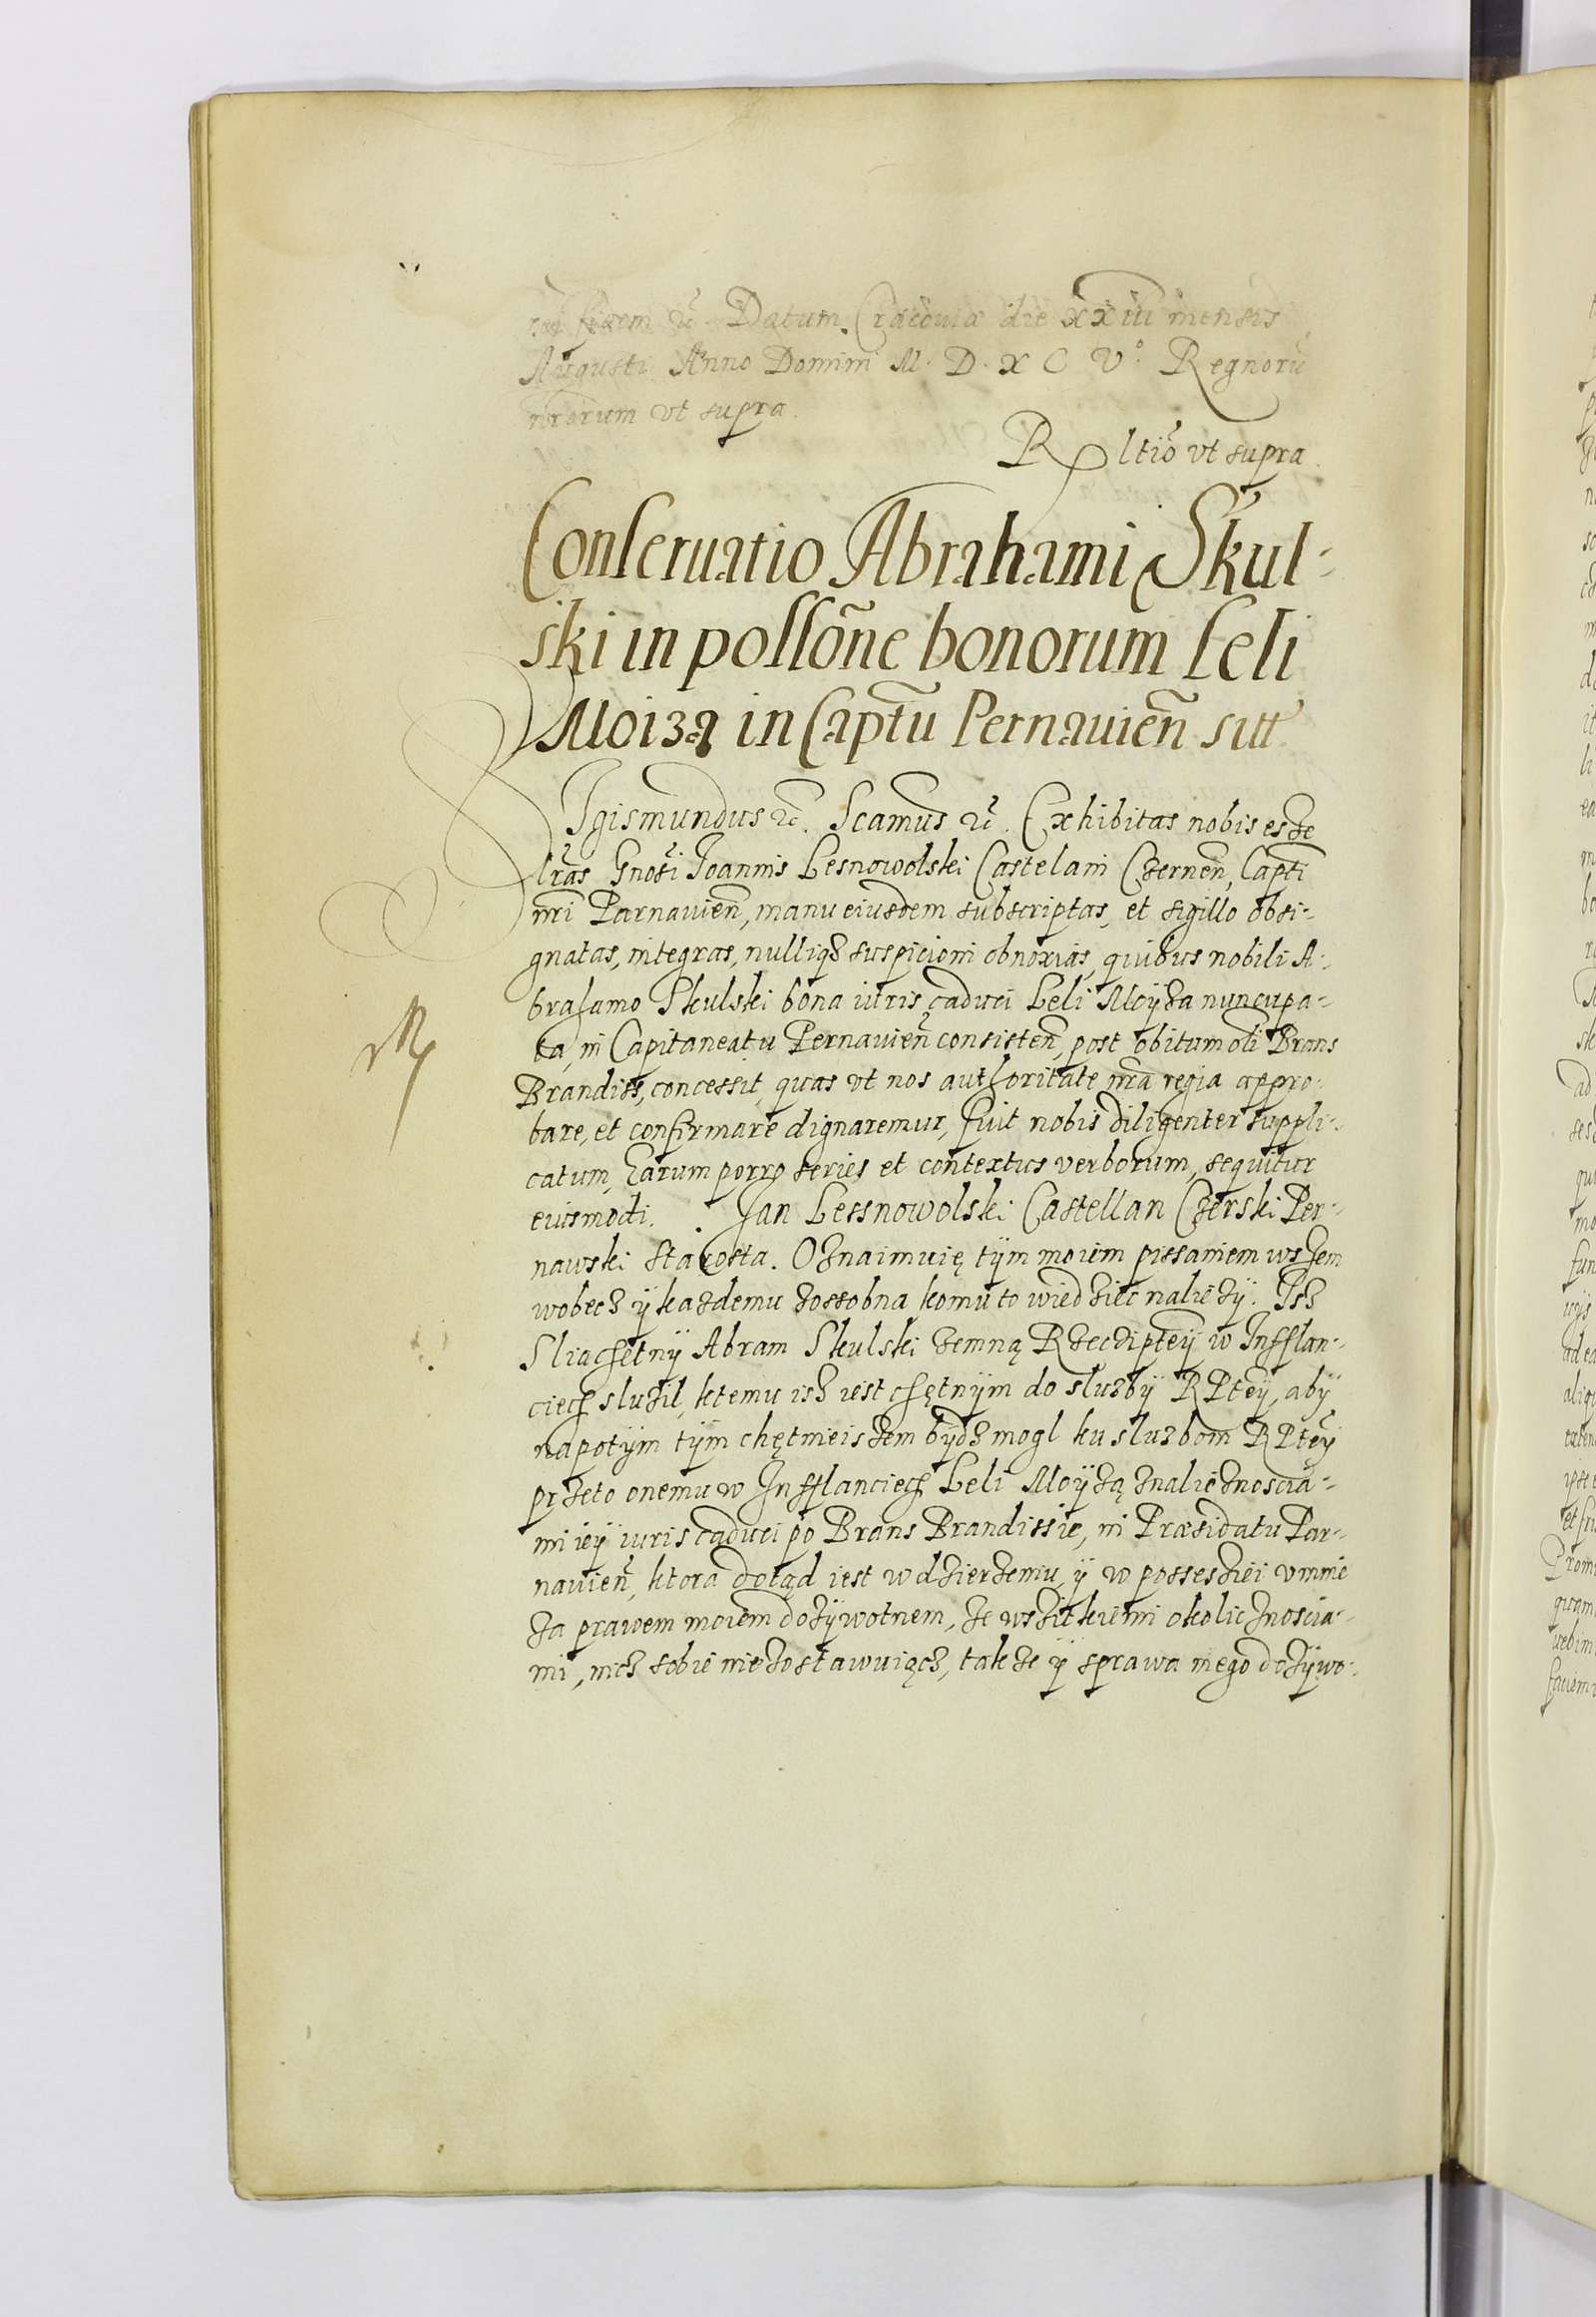 fidem &c. Datum Cracouiæ die xxiii mensis
Augusti Anno Domini M. D. X C V.° Regnorū
nrorum vt supra.
Rltiõ vt supra.
Conseruatio Abrahami Skul-
ski in possõne bonorum Leli
Moiza in Captũ Pernauień sitt
SIgismundus &c. Scamus &c. Exhibitas nobis esse
lrãs Gnosi Joannis Lesnowolski Castelani Czerneñ, Capti
nrĩ Parnauieñ, manu eiusdem subscriptas, et sigillo obsi-
gnatas, integras, nulliqȝ suspicioni obnoxias, quibus nobili A-
brahamo Skulski bona iuris caduci Leli Moÿza nuncupa-
ta, in Capitaneatu Pernauieñ consisteñ, post obitum oli Brans
Brandiss, concessit, quas vt nos authoritate nrã regia appro-
bare, et confirmare dignaremur, fuit nobis diligenter suppli-
catum, Earum porro series et contextus verborum, sequitur
eiusmodi. Jan Lessnowolski Castellan Czerski Per-
nawski starosta. Oznaimuię tÿm moiem pissaniem wszem
wobecz ÿ kazdemu zossobna, komu to wiedziec naliezÿ. Isz
Sliachetnÿ Abram Skulski zemną Rzeczipteÿ w Infflan-
ciech sluzil, ktemu isz iest chętnÿm do sluzbÿ RPteÿ, abÿ
napotÿm tÿm chętnieiszem bÿdz mogl ku sluzbom RPteÿ
przeto onemu w Infflanciech Leli Moÿzą znalieznoscia-
mi ieÿ iuris caduci po Brans Brandissie, in Præsidatu Par-
nauieñ, ktora dotąd iest w dzierzeniu ÿ w possesziei vmnie
za prawem moiem dozÿwotnem, ze wszitkiemi okolicznoscia-
mi, nicz sobie niezostawuiącz, takze ÿ sprawa mego dozÿwo-